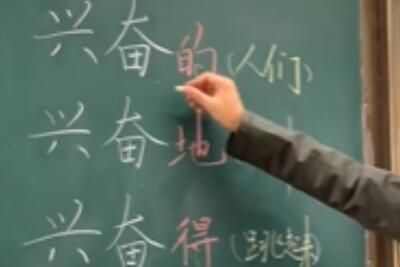 兴奋的(人们)
兴奋地
兴奋得(跳起来)